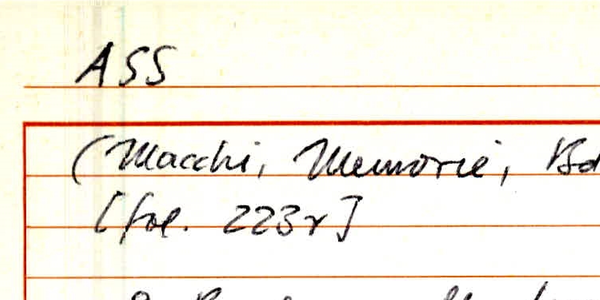 ASS
(Macchi, Memorie, Bd
[fol. 223r]